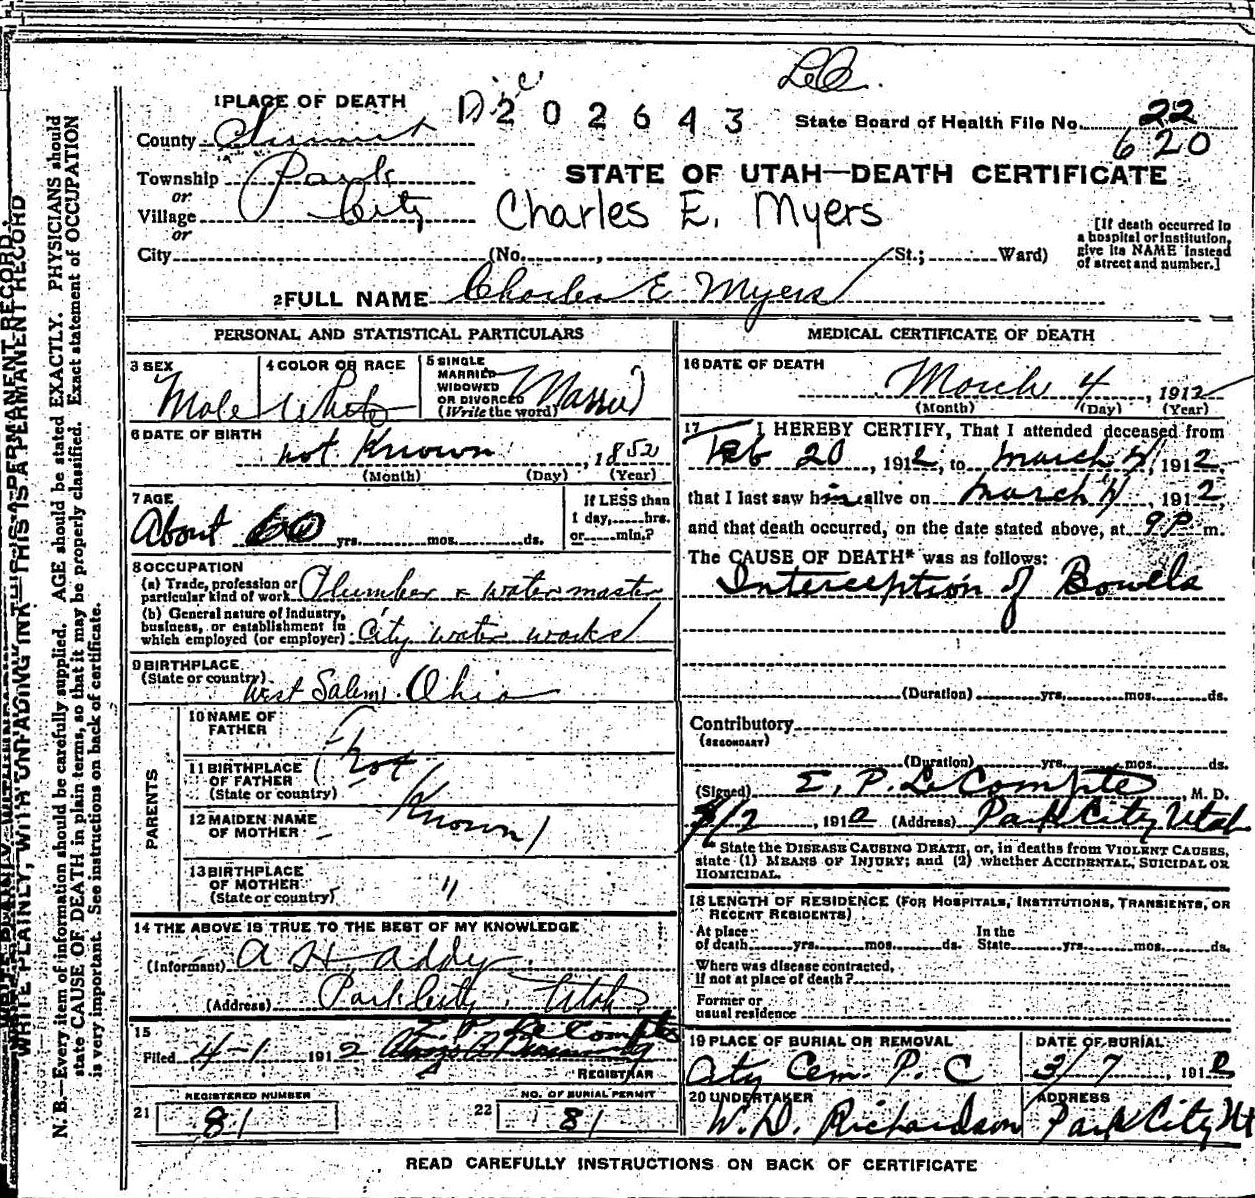 1 PLACE OF DEATH
202643
State Board of Health File No. 22
620
County Summit
STATE OF UTAH—DEATH CERTIFICATE
Township Park
or
Village City
or
Charles E. Myers
City (No. , St.; Ward)
[If death occurred in a hospital or institution, give its NAME instead of street and number.]
2 FULL NAME Charles E Myers
PERSONAL AND STATISTICAL PARTICULARS
3 SEX Male
4 COLOR OR RACE White
5 SINGLE MARRIED WIDOWED OR DIVORCED (Write the word) Married
6 DATE OF BIRTH not Known, 1852
(Month) (Day) (Year)
7 AGE About 60 yrs. mos. ds.
If LESS than 1 day, hrs. or min.?
8 OCCUPATION
(a) Trade, profession or particular kind of work Plumber & water master
(b) General nature of industry, business, or establishment in which employed (or employer) City water works
9 BIRTHPLACE
(State or country) West Salem. Ohio
PARENTS
10 NAME OF FATHER
11 BIRTHPLACE OF FATHER (State or country) not
12 MAIDEN NAME OF MOTHER Known
13 BIRTHPLACE OF MOTHER (State or country) "
14 THE ABOVE IS TRUE TO THE BEST OF MY KNOWLEDGE
(Informant) A H Addy
(Address) Park City, Utah
15
Filed 4-1 1912 E. P. Le Compte
REGISTRAR
REGISTERED NUMBER
21 81
NO. OF BURIAL PERMIT
22 81
MEDICAL CERTIFICATE OF DEATH
16 DATE OF DEATH
March 4, 1912
(Month) (Day) (Year)
17 I HEREBY CERTIFY, That I attended deceased from
Feb 20, 1912, to March 4, 1912,
that I last saw him alive on March 4, 1912,
and that death occurred, on the date stated above, at 9 P m.
The CAUSE OF DEATH* was as follows:
Interception of Bowels
(Duration) yrs. mos. ds.
Contributory
(SECONDARY)
(Duration) yrs. mos. ds.
(Signed) E. P. Le Compte, M. D.
, 191 (Address) Park City Utah
State the DISEASE CAUSING DEATH, or, in deaths from VIOLENT CAUSES,
state (1) MEANS OF INJURY; and (2) whether ACCIDENTAL, SUICIDAL OR
HOMICIDAL.
18 LENGTH OF RESIDENCE (FOR HOSPITALS, INSTITUTIONS, TRANSIENTS, OR
RECENT RESIDENTS)
At place of death yrs. mos. ds. In the State yrs. mos. ds.
Where was disease contracted,
if not at place of death?
Former or
usual residence
19 PLACE OF BURIAL OR REMOVAL
City Cem. P. C
DATE OF BURIAL
3/7, 1912
20 UNDERTAKER
W. D. Richardson
ADDRESS
Park City Ut
READ CAREFULLY INSTRUCTIONS ON BACK OF CERTIFICATE
WRITE PLAINLY, WITH UNFADING INK—THIS IS A PERMANENT RECORD
N. B.—Every item of information should be carefully supplied. AGE should be stated EXACTLY. PHYSICIANS should
state CAUSE OF DEATH in plain terms, so that it may be properly classified. Exact statement of OCCUPATION
is very important. See instructions on back of certificate.